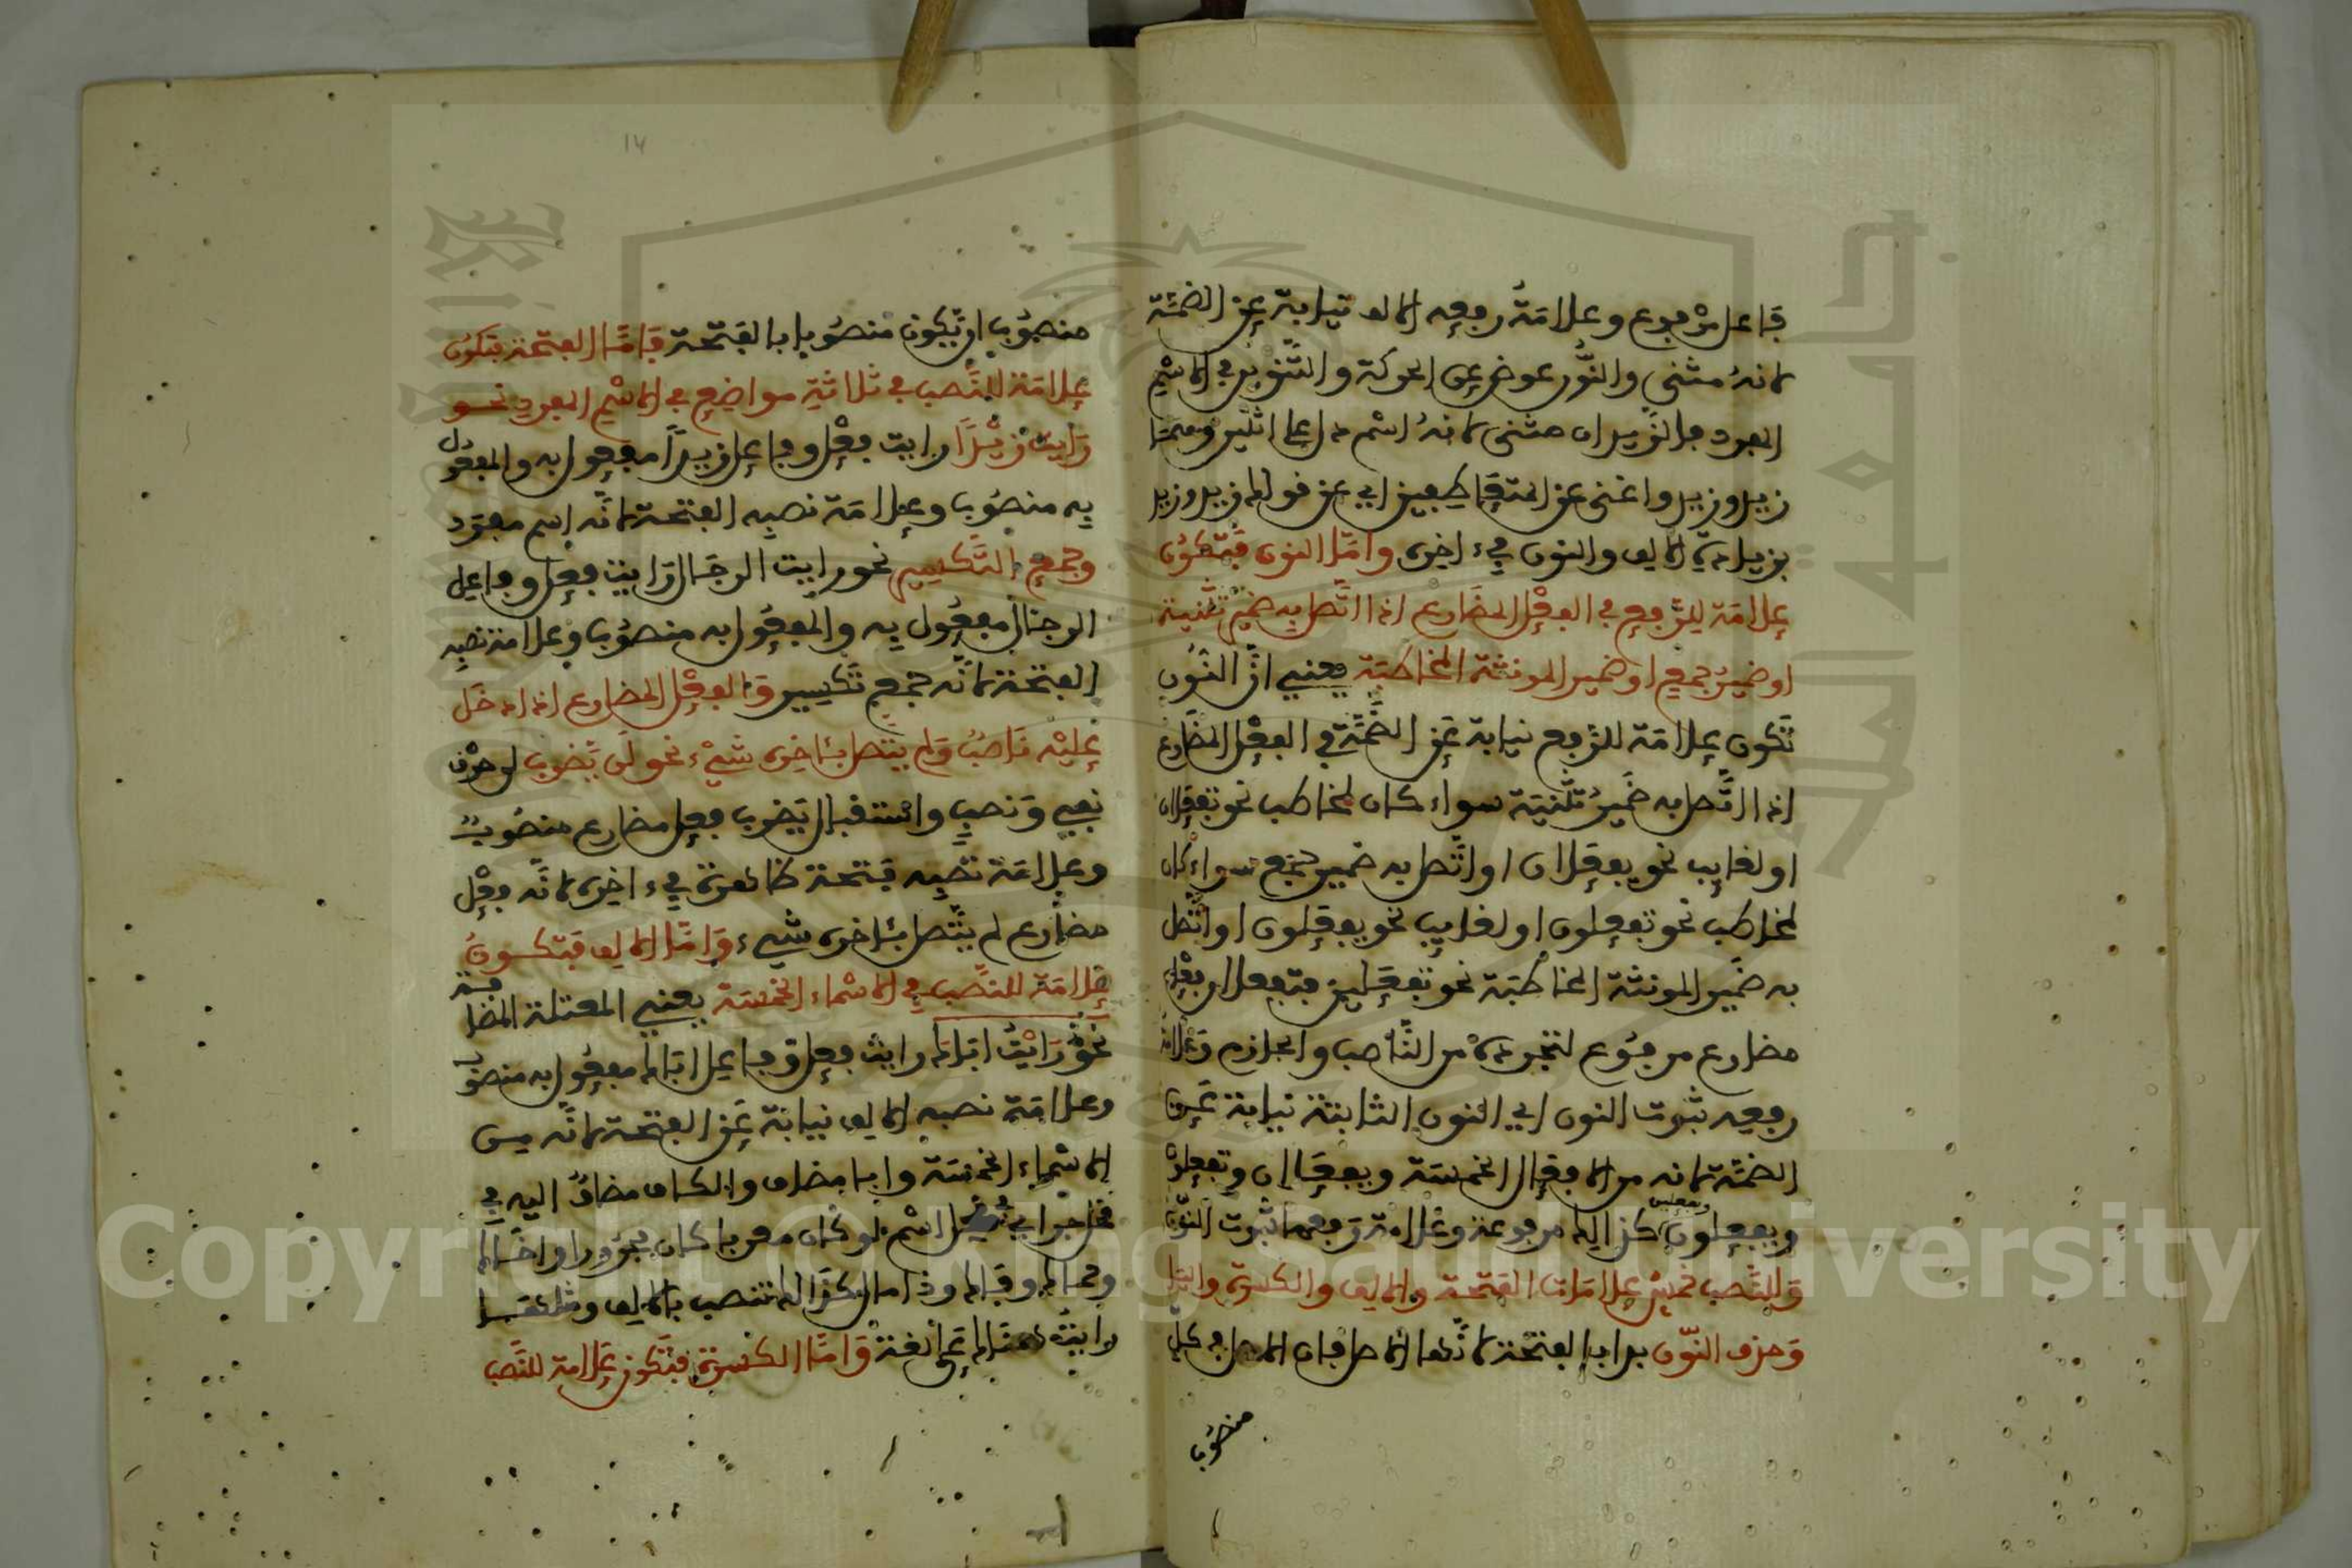 فاعل مرفوع وعلامة رفعه الالف نيابة عن الضمة
لانه مثنى والنون عوض عن الحركة والتنوين في الاسم
المفرد فالزيدان مثنى لانه اسم دل على اثنين
زيد وزيد واغنى عن المتعاطفين اي عن قولك زيد وزيد
بزيادة الالف والنون في ءاخره واما النون فتكون
علامة للرفع في الفعل المضارع اذا اتصل به ضمير تثنية
او ضمير جمع او ضمير المونثة المخاطبة يعني ان النون
تكون علامة للرفع نيابة عن الضمة في الفعل المضارع
اذا اتصل به ضمير تثنية سواء كان لمخاطب نحو تفعلان
او لغايب نحو يفعلان او اتصل به ضمير جمع سواء كان
لمخاطب نحو تفعلون او لغايب نحو يفعلون او اتصل
به ضمير المونثة المخاطبة نحو تفعلين فتفعلان فعل
مضارع مرفوع لتجرده من الناصب والجازم وعلامة
رفعه ثبوت النون اي النون الثابتة نيابة عن
الضمة لانه من الافعال الخمسة ويفعلان وتفعلون
ويفعلون وتفعلين كذالك مرفوعة وعلامة رفعها ثبوت النون
وللنصب خمس علامات الفتحة والالف والكسرة واليا
وحذف النون بدا بالفتحة لانها الاصل فان الاصل في كل
منصوب
١٧
منصوب ان يكون منصوبا بالفتحة فاما الفتحة فتكون
علامة للنصب في ثلاثة مواضع في الاسم المفرد نحو
رايت زيدا رايت فعل وفاعل زيدا مفعول به والمفعول
به منصوب وعلامة نصبه الفتحة لانه اسم مفرد
وجمع التكسير نحو رايت الرجال رايت فعل وفاعل
الرجال مفعول به والمفعول به منصوب وعلامة نصبه
الفتحة لانه جمع تكسير والفعل المضارع اذا دخل
عليه ناصب ولم يتصل بئاخره شيء نحو لن يضرب لن حرف
نفي ونصب واستقبال يضرب فعل مضارع منصوب
وعلامة نصبه فتحة ظاهرة في ءاخره لانه فعل
مضارع لم يتصل بئاخره شيء واما الالف فتكون
علامة للنصب في الاسماء الخمسة يعني المعتلة المضافة
نحو رايت اباك رايت فعل وفاعل اباك مفعول به منصوب
وعلامة نصبه الالف نيابة عن الفتحة لانه من
الاسماء الخمسة وابا مضاف والكاف مضاف اليه في
محل جر اي في محل اسم لو كان معربا كان مجرورا واخاك
وحماك وفاك وذا مال كذالك تنصب بالالف
رايت هناك على لغة واما الكسرة فتكون علامة للنصب